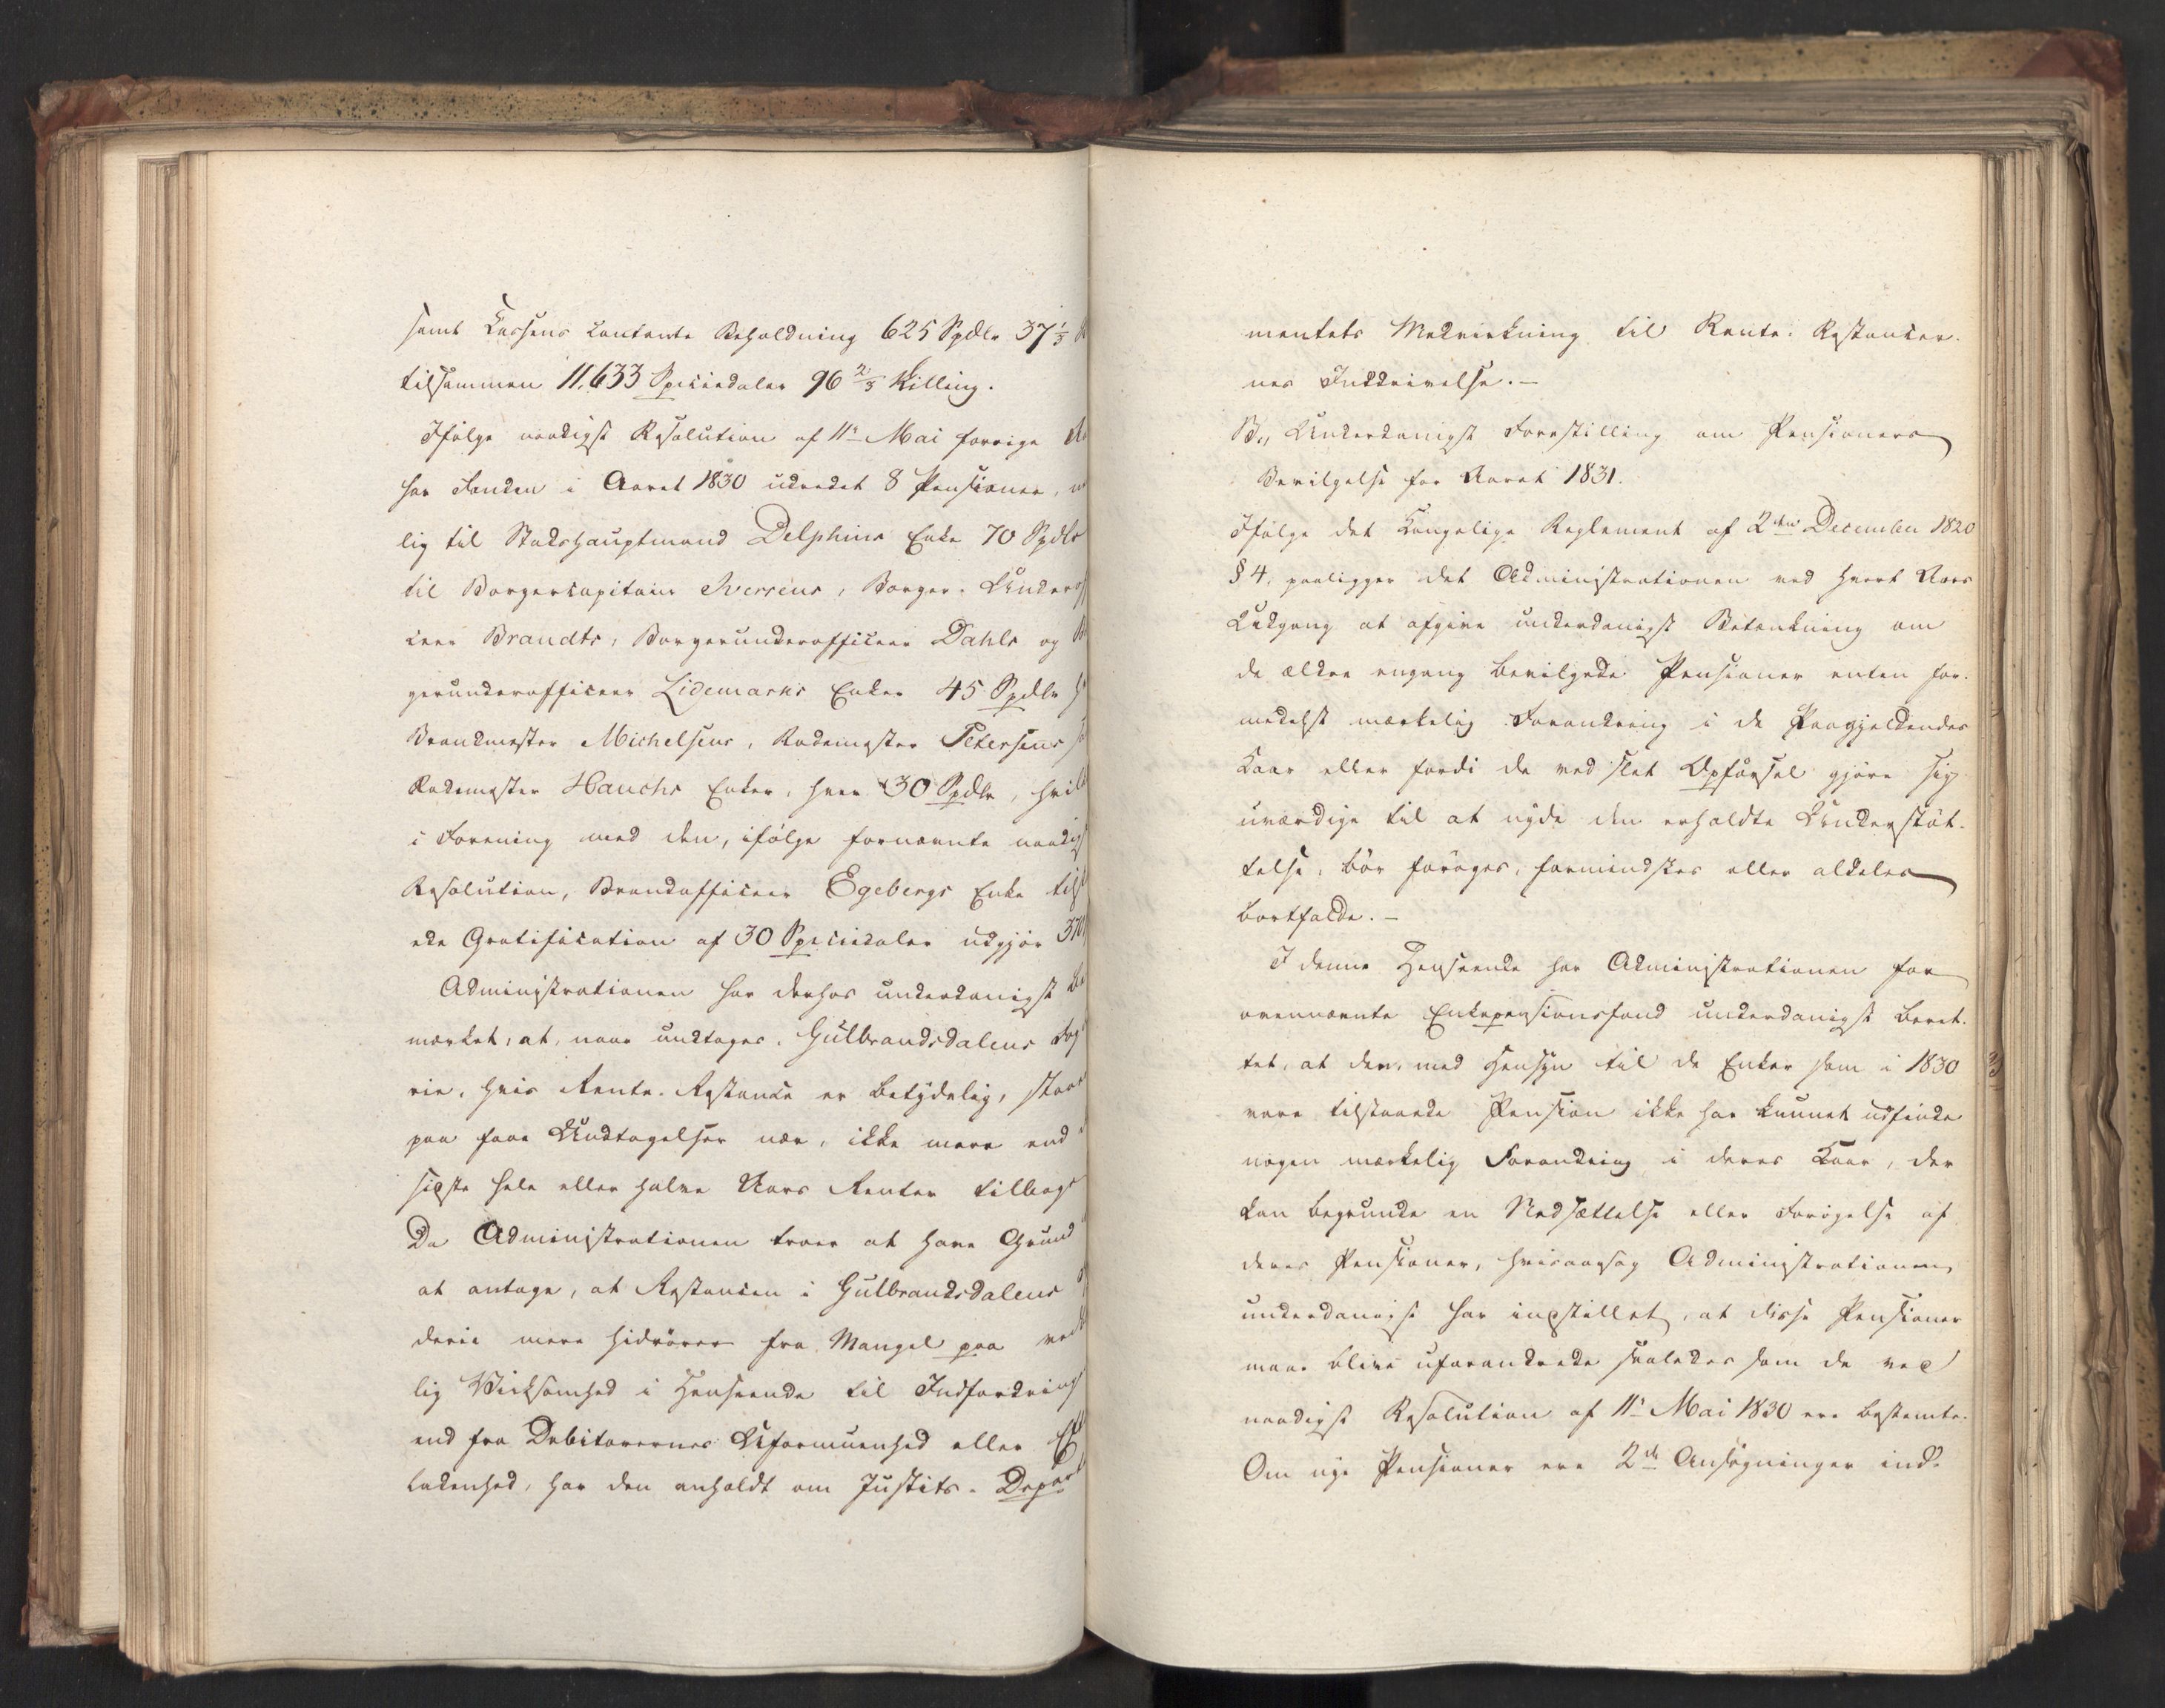 samt Kassens contante Beholdning 625 Spdlr 37 1/3
tilsammen 11,633 Speciedaler 96 2/3 skilling.
Ifølge naadigst Resolution af 11te Mai forrige
har Fonden i Aaret 1830 udredet 8 Pensioner,
lig til Stadshauptmand Delphins Enke 70 Spdlr
til Borgercapitain Iversens, Borger-Underof
ceer Brandts, Borgerunderofficeer Dahls og
gerunderofficeer Lidemarks Enker 45 Spdlr
Brandmester Michelsens, Rodemester Petersens
Rodemester Hauchs Enker, hver 30 Spdlr, hvil
i Forening med den, ifølge fornævnte naadigst
Resolution, Brandofficeer Egebergs Enke tilst
ede Gratification af 30 Speciedaler udgjør 370
Administrationen har derhos underdanigst be
mærket, at, naar undtages Gulbrandsdalens Fog
rie, hvis Rente-Restance er betydelig, staar
paa faae Undtagelser nær, ikke mere end
sidste hele eller halve Aars Renter tilbage
Da Administrationen troer at have Grund
at antage, at Restancen i Gulbrandsdalens
derie mere hidrører fra Mangel paa ved
lig Virksomhed i Henseende til Indfordring
end fra Debitorernes Uformuenhed eller Ef
ladenhed, har den anholdt om Justits-Depart
mentets Medvirkning til Rente-Restancer-
nes Inddrivelse.-
B., Underdanigst Forestilling om Pensioners
Bevilgelse for Aaret 1831.
Ifølge det Kongelige Reglement af 2den December 1820
§ 4, paaligger det Administrationen ved hvert Aars
Udgang at afgive underdanigst Betænkning om
de ældre engang bevilgede Pensioner enten for-
medelst mærkelig Forandring i de Paagjeldendes
Kaar eller fordi de ved slet Opførsel gjøre sig
uværdige til at nyde den erholdte Understøt-
telse, bør forøges, formindskes eller aldeles
bortfalde.-
I denne Henseende har Administrationen for
ovennævnte Enkepensionsfond underdanigst beret-
tet, at den, med Hensyn til de Enker som i 1830
vare tilstaaede Pension ikke har kunnet udfinde
nogen mærkelig Forandring i deres Kaar, der
kan begrunde en Nedsættelse eller Forøgelse af
deres Pensioner, hvisaarsag Administrationen
underdanigst har indstillet, at disse Pensioner
maae blive uforandrede saaledes som de ved
naadigst Resolution af 11te Mai 1830 ere bestemte.
Om nye Pensioner ere 2de Ansøgninger ind-